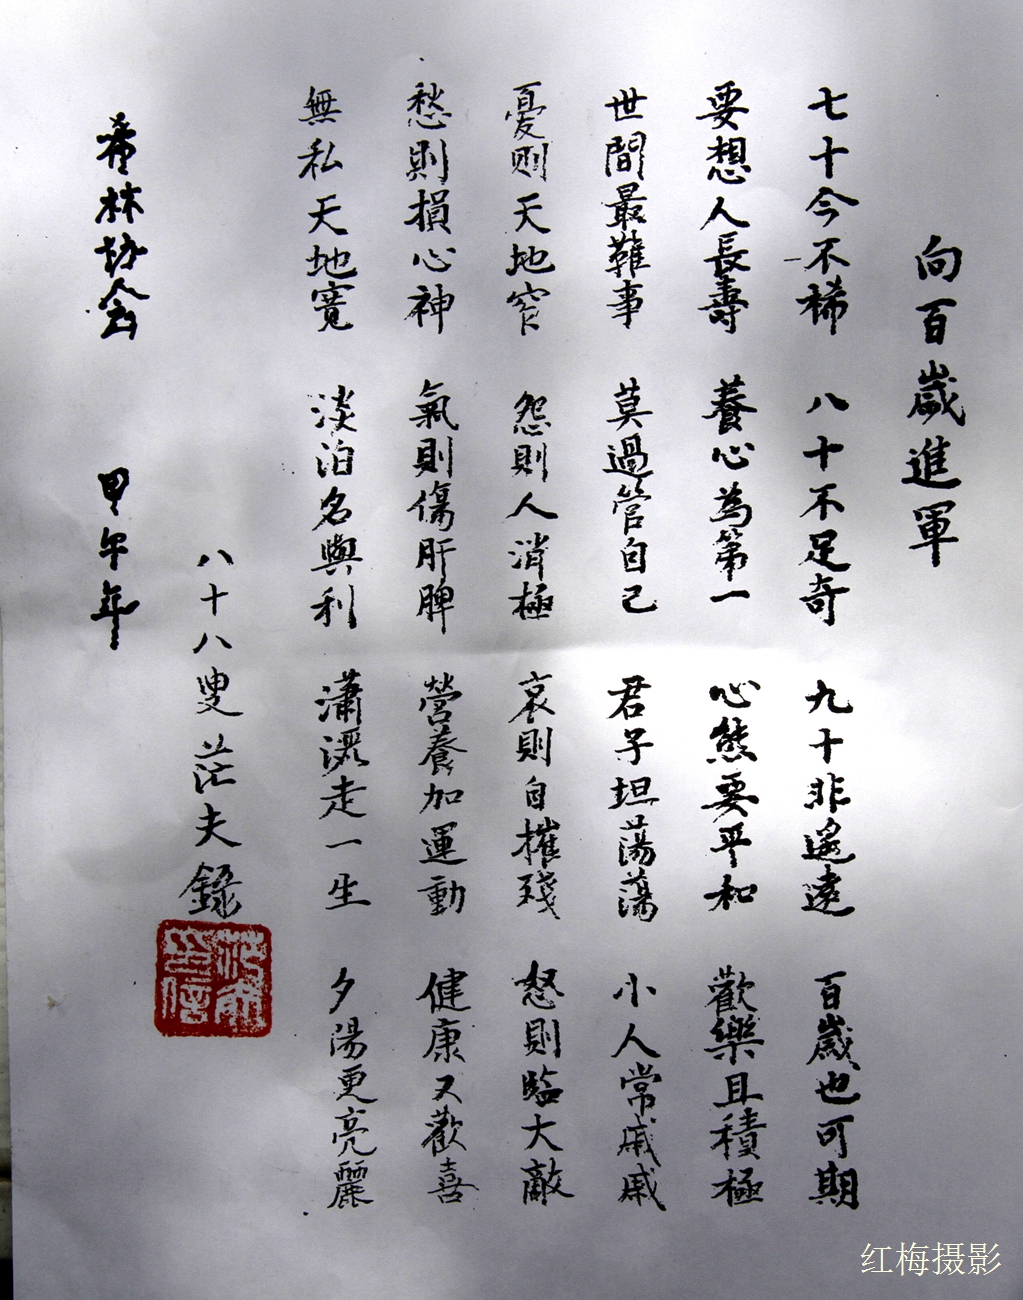 向百歲進軍
七十今不稀 八十不足奇 九十非遙遠 百歲也可期
要想人長壽 養心為第一 心態要平和 歡樂且積極
世間最難事 莫過管自己 君子坦蕩蕩 小人常戚戚
憂則天地窄 怨則人消極 哀則自摧殘 怒則臨大敵
愁則損心神 氣則傷肝脾 營養加運動 健康又歡喜
無私天地寬 淡泊名與利 瀟灑走一生 夕陽更亮麗
八十八叟茫夫錄
希林協會 甲午年
红梅摄影